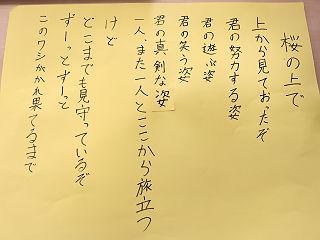 桜の上で
上から見ておったぞ
君の努力する姿
君の遊ぶ姿
君の笑う姿
君の真剣な姿
一人、また一人とここから旅立つ
けど
どこまでも見守っているぞ
ずーっとずーっと
このワシがかれ果てるまで